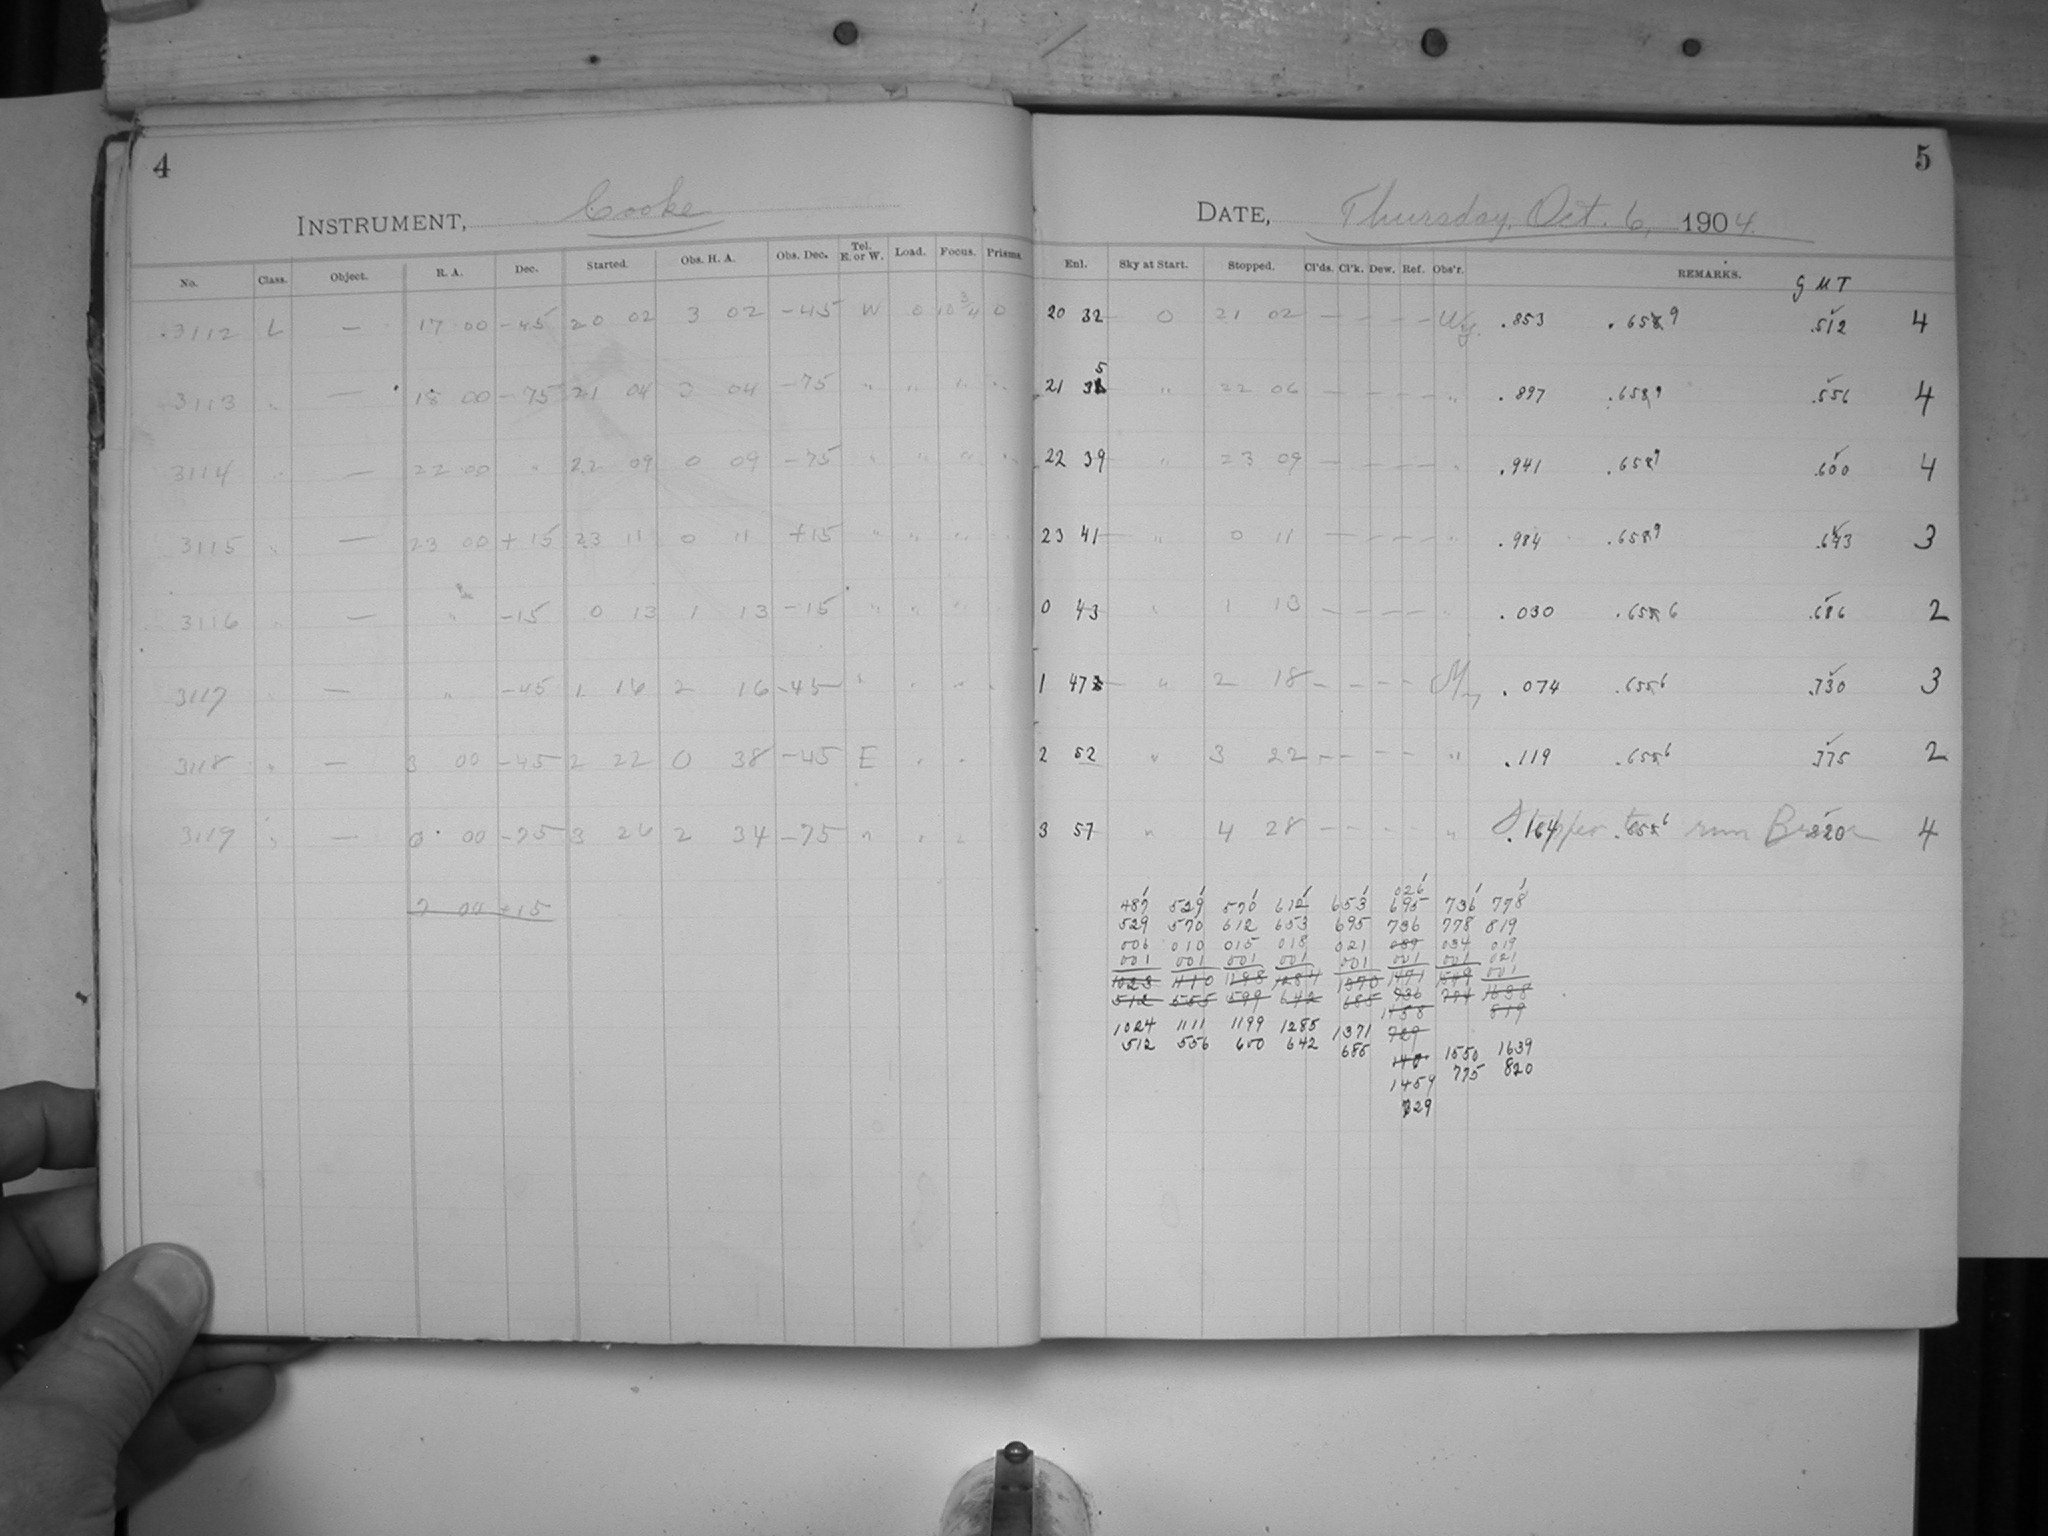 4
INSTRUMENT, Cooke
No. Class. Object. R. A. Dec. Started. Obs. H. A. Obs. Dec. Tel. E. or W. Load. Focus. Prisms.
3112 L — 17 00 -45 20 02 3 02 -45 W 0 10 3/4 0
3113 " — 18 00 -75 21 04 3 04 -75 " " " "
3114 " — 22 00 " 22 09 0 09 -75 " " " "
3115 " — 23 00 +15 23 11 0 11 +15 " " " "
3116 " — " -15 0 13 1 13 -15 " " "
3117 " — " -45 1 16 2 16 -45 " " " "
3118 " — 3 00 -45 2 22 0 38 -45 E " "
3119 " — 6 00 -75 3 26 2 34 -75 " " "
7 00 +15
5
DATE, Thursday, Oct. 6, 1904
Enl. Sky at Start. Stopped. Cl'ds. Cl'k. Dew. Ref. Obs'r. REMARKS. GMT
20 32 0 21 02 — — — — Wy. .853 .6589 .512 4
21 35 " 22 06 — — — — " .897 .6589 .556 4
22 39 " 23 09 — — — — " .941 .6589 .600 4
23 41 " 0 11 — — — — " .984 .6589 .643 3
0 43 " 1 13 — — — — " .030 .6556 .686 2
1 47 " 2 18 — — — — .074 .6556 .730 3
2 52 " 3 22 — — — — " .119 .6556 .775 2
3 57 " 4 28 — — — — " .164 .6556 run 820 4
026
487 529 570 612 653 695 736 778
529 570 612 653 695 736 778 819
006 010 015 018 021 034 019
001 001 001 001 001 001 001 021
1023 1110 1198 1284 1370 1471 1549 001
512 555 599 642 685 736 774 1638
1458 819
1024 1111 1199 1285 1371 729
512 556 600 642 685 1550 1639
1459 775 820
729